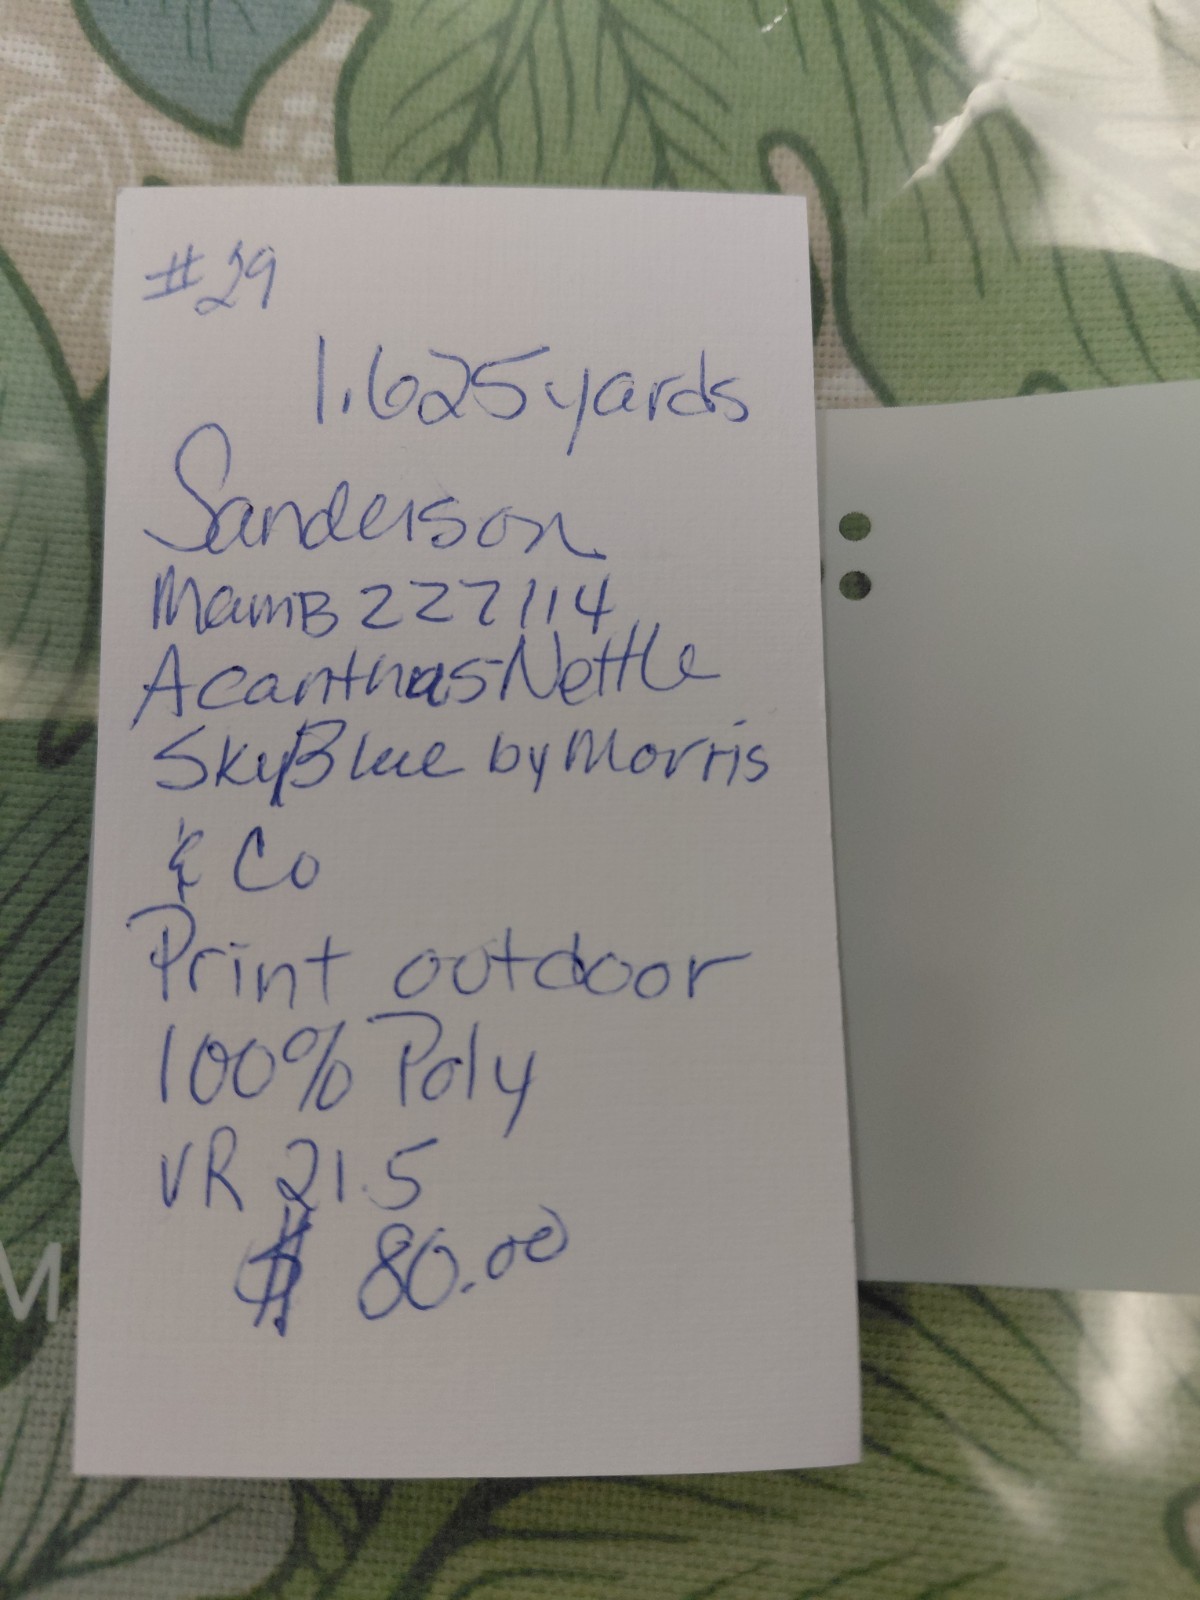 #29
1.625 yards
Sanderson
MamB 227114
Acanthus-Nettle
SkyBlue by Morris
& Co
Print outdoor
100% Poly
VR 21.5
$ 80.00
M